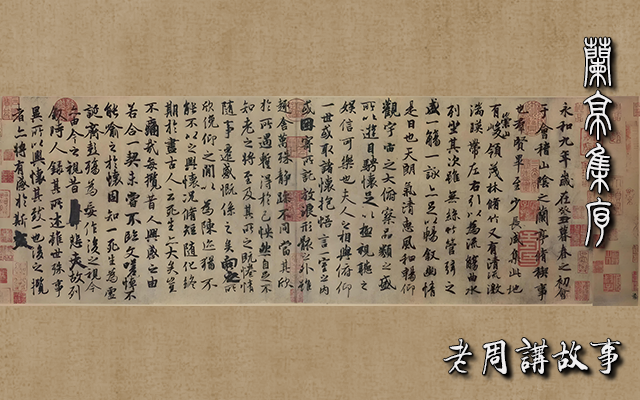 蘭亭集序
永和九年歲在癸丑暮春之初會
于會稽山陰之蘭亭脩稧事
也羣賢畢至少長咸集此地
有崇山峻領茂林脩竹又有清流激
湍暎帶左右引以為流觴曲水
列坐其次雖無絲竹管弦之
盛一觴一詠亦足以暢叙幽情
是日也天朗氣清惠風和暢仰
觀宇宙之大俯察品類之盛
所以遊目騁懷足以極視聽之
娛信可樂也夫人之相與俯仰
一世或取諸懷抱悟言一室之內
或因寄所託放浪形骸之外雖
趣舍萬殊靜躁不同當其欣
於所遇蹔得於己怏然自足不
知老之將至及其所之既惓情
隨事遷感慨係之矣向之所
欣俛仰之間以為陳迹猶不
能不以之興懷況脩短隨化終
期於盡古人云死生亦大矣豈
不痛哉每攬昔人興感之由
若合一契未嘗不臨文嗟悼不
能喻之於懷固知一死生為虛
誕齊彭殤為妄作後之視今
亦由今之視昔悲夫故列
叙時人錄其所述雖世殊事
異所以興懷其致一也後之攬
者亦將有感於斯
老周講故事